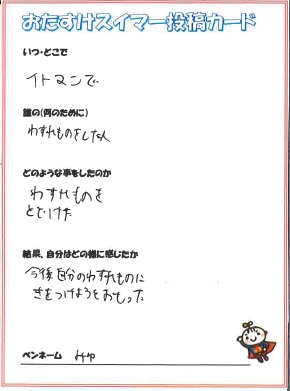 おたすけスイマー投稿カード
いつ・どこで
イトマンで
誰の(何のために)
わすれものをした人
どのような事をしたのか
わすれものを
とどけた
結果、自分はどの様に感じたか
今後自分のわすれものに
きをつけようとおもった
ペンネーム